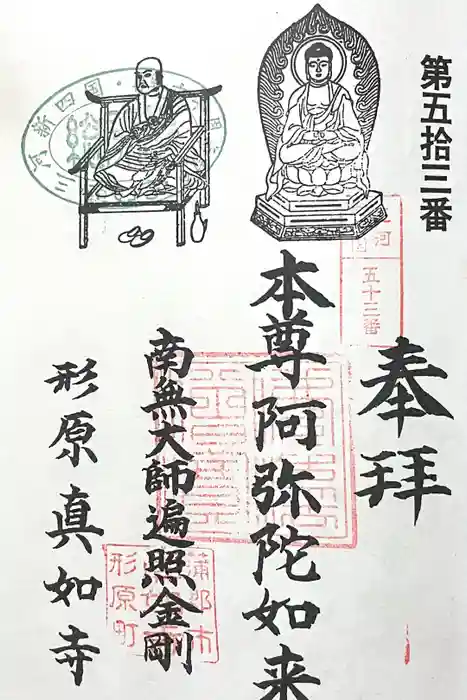 第五拾三番
奉拝
河
五十三番
本尊阿弥陀如来
南無大師遍照金剛
形原真如寺
蒲郡市
形原町